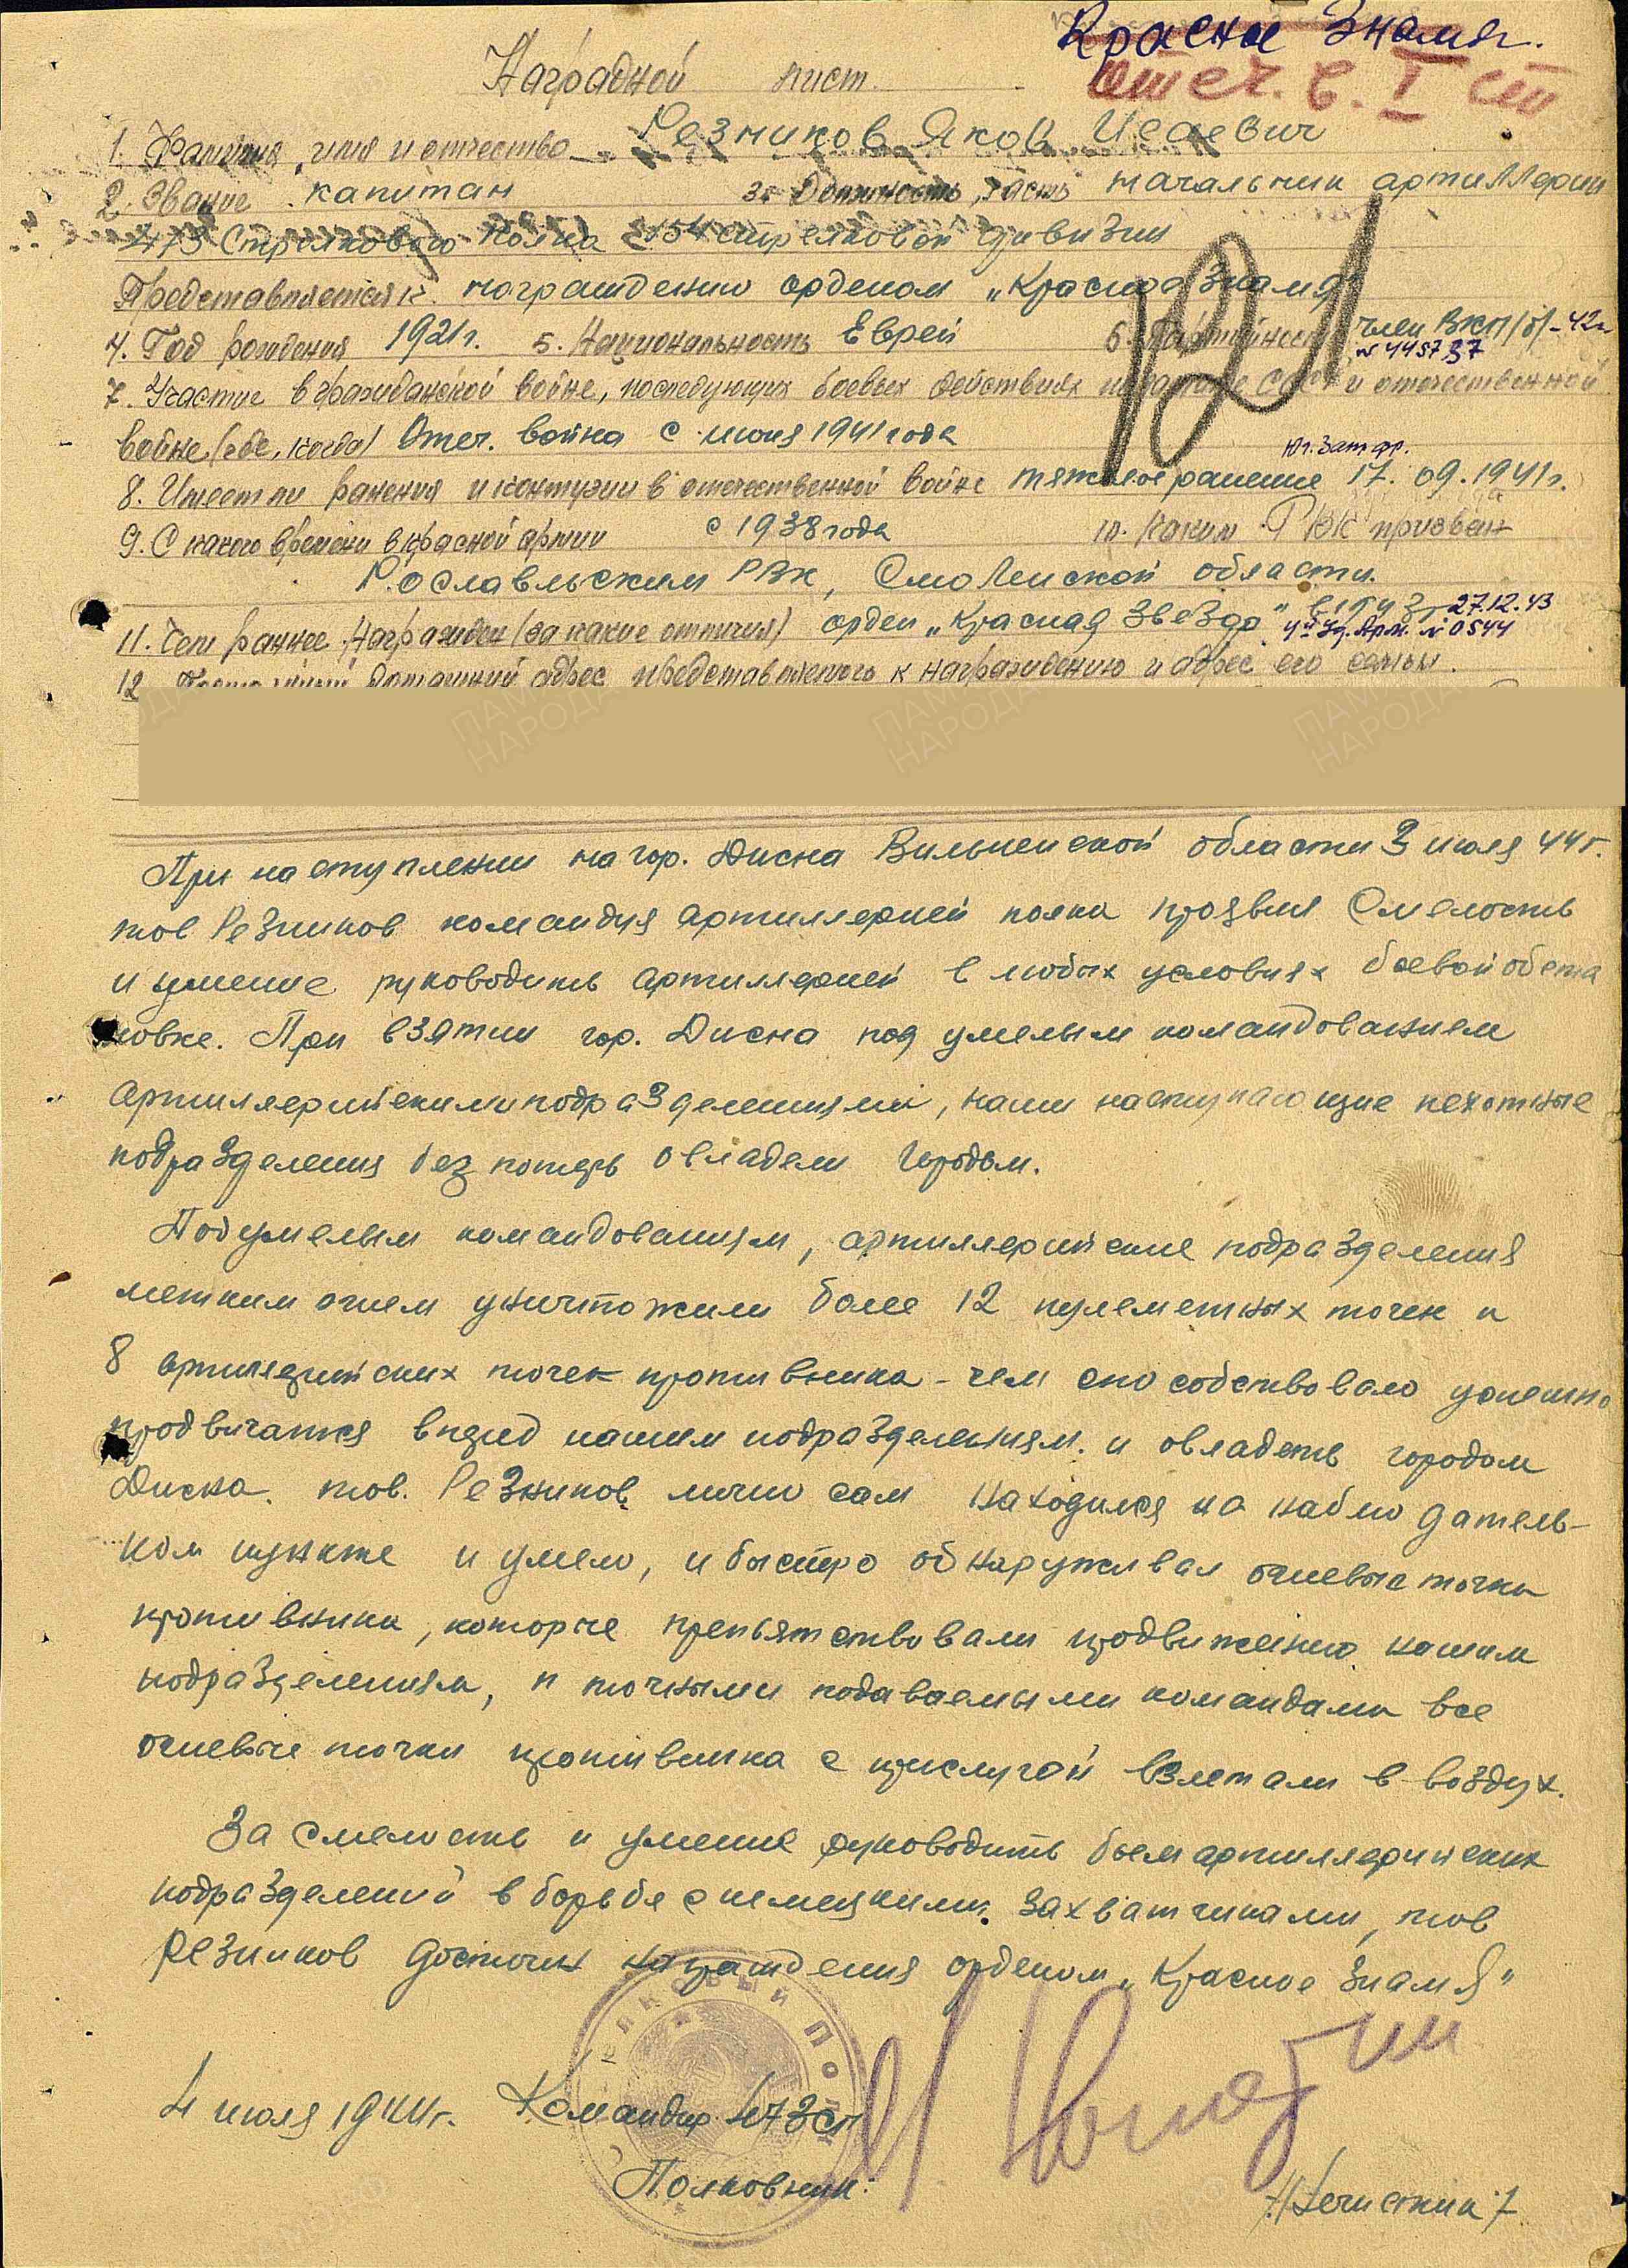 Красное Знамя.
Отеч. в. I ст
Наградной лист.
1. Фамилия, имя и отчество Резников Яков Исаевич
2. Звание капитан 3. Должность, часть начальник артиллерии
473 Стрелкового полка 154 стрелковой дивизии
Представляется к награждению орденом „Красное Знамя"
4. Год рождения 1921 г. 5. Национальность Еврей 6. Партийность член ВКП/б/-42г.
№ 4457
7. Участие в гражданской войне, последующих боевых действиях по защите СССР и отечественной
войне (где, когда) Отеч. война с июня 1941 года
Юг. Зап фр.
8. Имеет ли ранения и контузии в отечественной войне тяжелое ранение 17. 09. 1941г.
9. С какого времени в красной армии с 1938 года 10. Каким РВК призван
Рославльским РВК, Смоленской области.
11. Чем раннее награжден (за какие отличия) орден „Красная Звезда" 27.12.43
4й Уд. Арм. № 0544
12. домашний адрес представляемого к награждению и адрес его семьи.
При наступлении на гор. Дисна Вильненской области 3 июля 44 г.
тов Резников командуя артиллерией полка проявил Смелость
и умение руководить артиллерией в любых условиях боевой обста
новке. При взятии гор. Дисна под умелым командованием
артиллерийскими подразделениями, наши наступающие пехотные
подразделения без потерь овладели Городом.
Под умелым командованием, артиллерийские подразделения
метким огнем уничтожили более 12 пулеметных точек и
8 артиллерийских точек противника - чем способствовало успешно
продвигатся вперед нашим подразделениям. и овладеть городом
Дисна. тов. Резников лично сам находился на наблюдатель-
ном пункте и умело, и быстро обнаруживал огневые точки
противника, которые препятствовали продвижению нашим
подразделениям, и точными подаваемыми командами все
огневые точки противника с прислугой взлетали в воздух.
За смелость и умение руководить боем артиллерийских
подразделений в борьбе с немецкими захватчиками, тов
Резников достоин награждения орденом „Красное Знамя"
4 июля 1944 г. Командир 473 сп
Полковник: